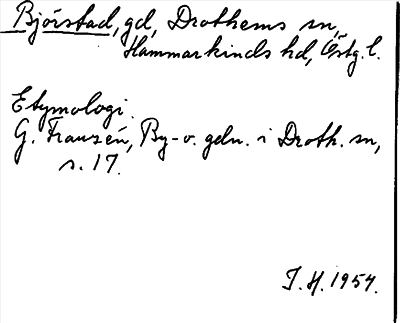 Björstad, gd, Drothems sn,
Hammarkinds hd, Östg. l.
Etymologi.
G. Franzén, By- o. gdn. i Droth. sn,
s. 17.
J. H. 1954.